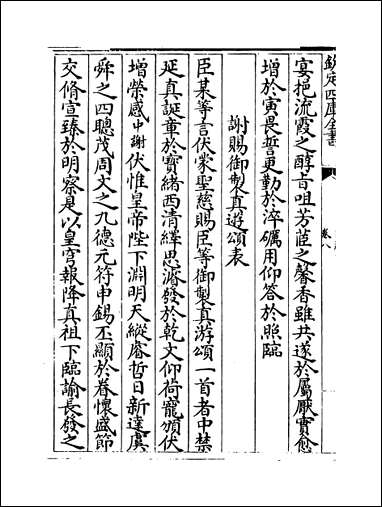 欽定四庫全書
宴挹流霞之醇旨咀芳茝之馨香雖共遂於屬厭實愈
增於寅畏誓更勤於淬礪用仰答於照臨
謝賜御製真遊頌表
臣某等言伏蒙聖慈賜臣等御製真游頌一首者中禁
延真誕章於寶緒西清繹思濬發於乾文仰荷寵頒伏
增榮感中謝伏惟皇帝陛下淵明天縱睿哲日新達虞
舜之四聰茂周文之九德元符申錫丕顯於眷懷盛節
交脩宣臻於明察是以皇穹報降真祖下臨諭長發之